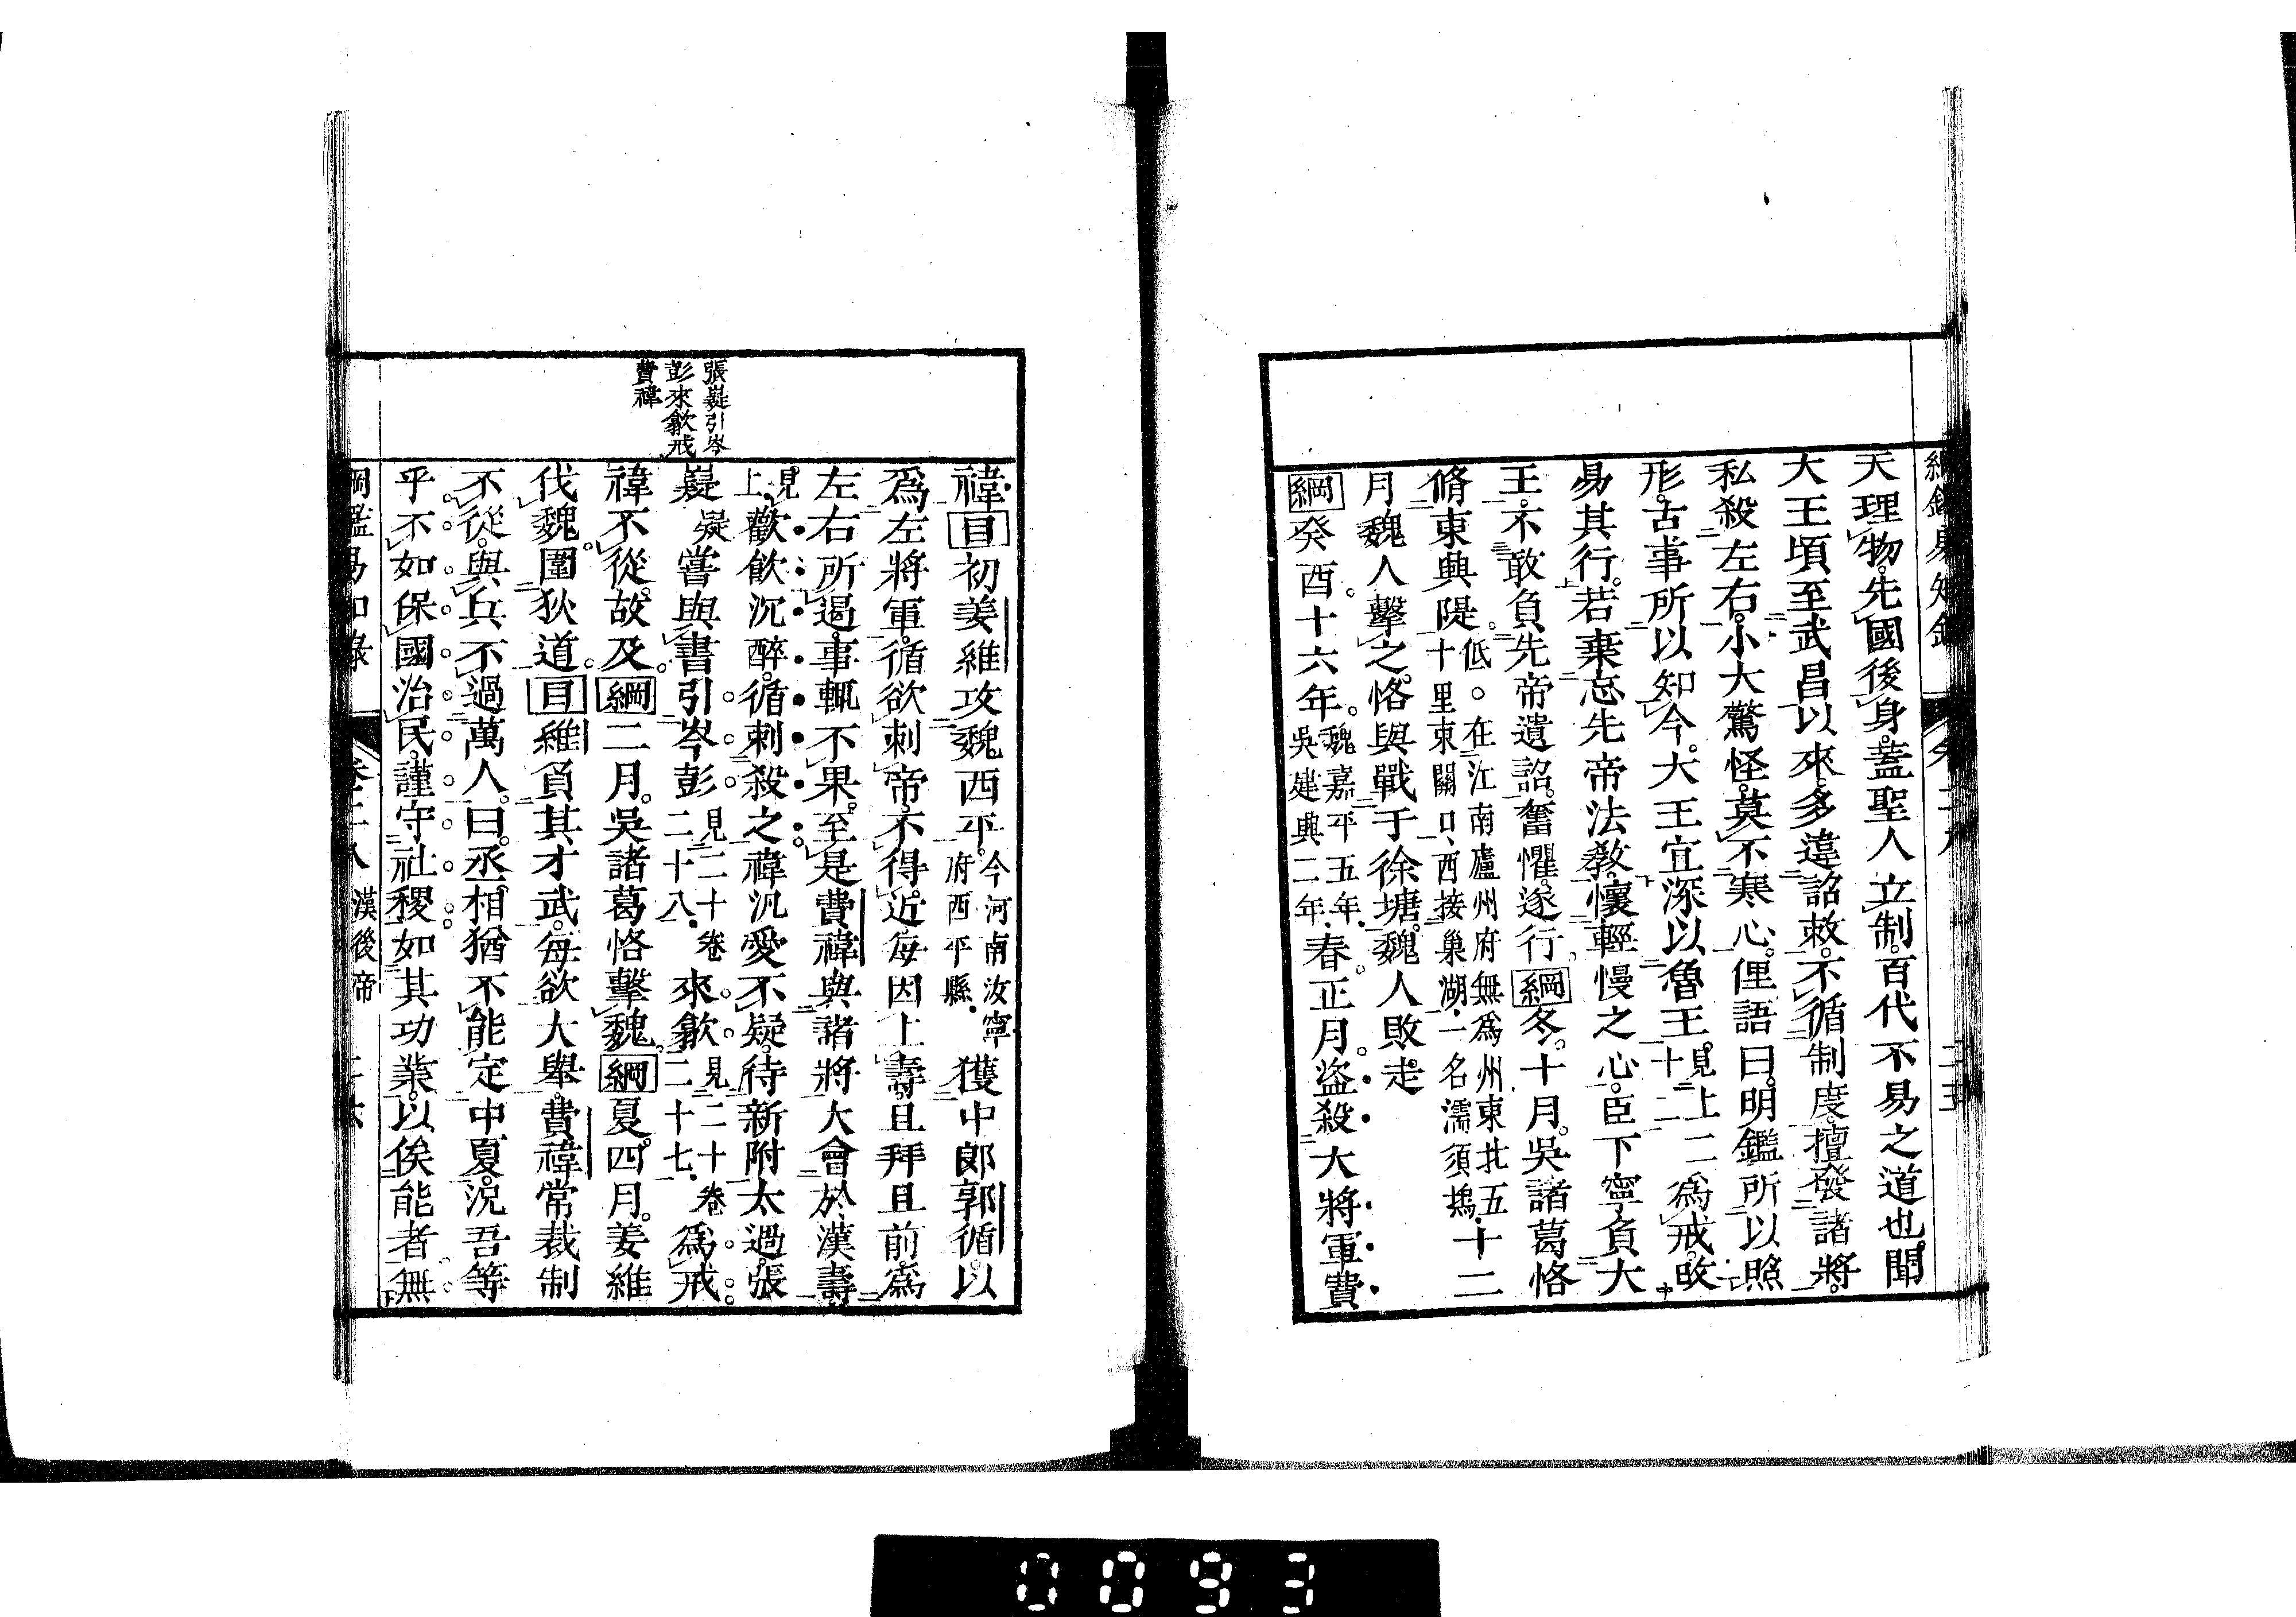 天理物。先國後身。蓋聖人立制。百代不易之道也。聞
大王頃至武昌以來。多違詔敕。不循制度。擅發諸將。
私殺左右。小大驚怪。莫不寒心。俚語曰。明鑑所以照
形。古事所以知今。大王宜深以魯王。見上二十二爲戒。改
易其行。若棄忘先帝法教。懷輕慢之心。臣下寧負大
王。不敢負先帝遺詔。奮懼。遂行。綱冬。十月。吳諸葛恪
脩東興隄。低。在江南廬州府無爲州東北五十里東關口、西接巢湖、一名濡須塢、十二
月。魏人擊之。恪與戰于徐塘。魏人敗走。
綱癸酉。十六年。魏嘉平五年。吳建興二年。春。正月。盜殺大將軍費
張嶷引岑
彭來歙戒
費禕
禕。目初姜維攻魏西平。今河南汝寧府西平縣。獲中郎郭循。以
爲左將軍。循欲刺帝。不得近。每因上壽。且拜且前。爲
左右所遏。事輒不果。至是費禕與諸將大會於漢壽。
見上歡飲沉醉。循刺殺之。禕汎愛不疑。待新附太過。張
嶷嶷嘗與書。引岑彭見二十卷二十八、來歙見二十卷二十七、爲戒。
禕不從。故及。綱二月。吳諸葛恪擊魏。綱夏。四月。姜維
伐魏。圍狄道。目維負其才武。每欲大舉。費禕常裁制
不從。與兵不過萬人。曰。丞相猶不能定中夏。況吾等
乎。不如保國治民。謹守社稷。如其功業。以俟能者。無
綱鑑易知錄 卷二十八 漢後帝 二六
0093